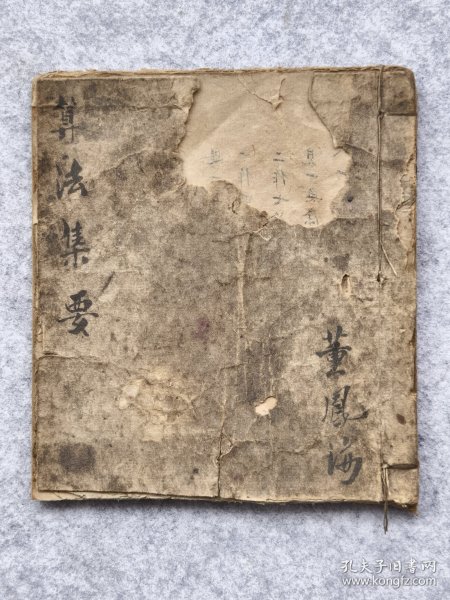 算法集要
董鳳海
孔夫子旧书网
www.kongfz.com